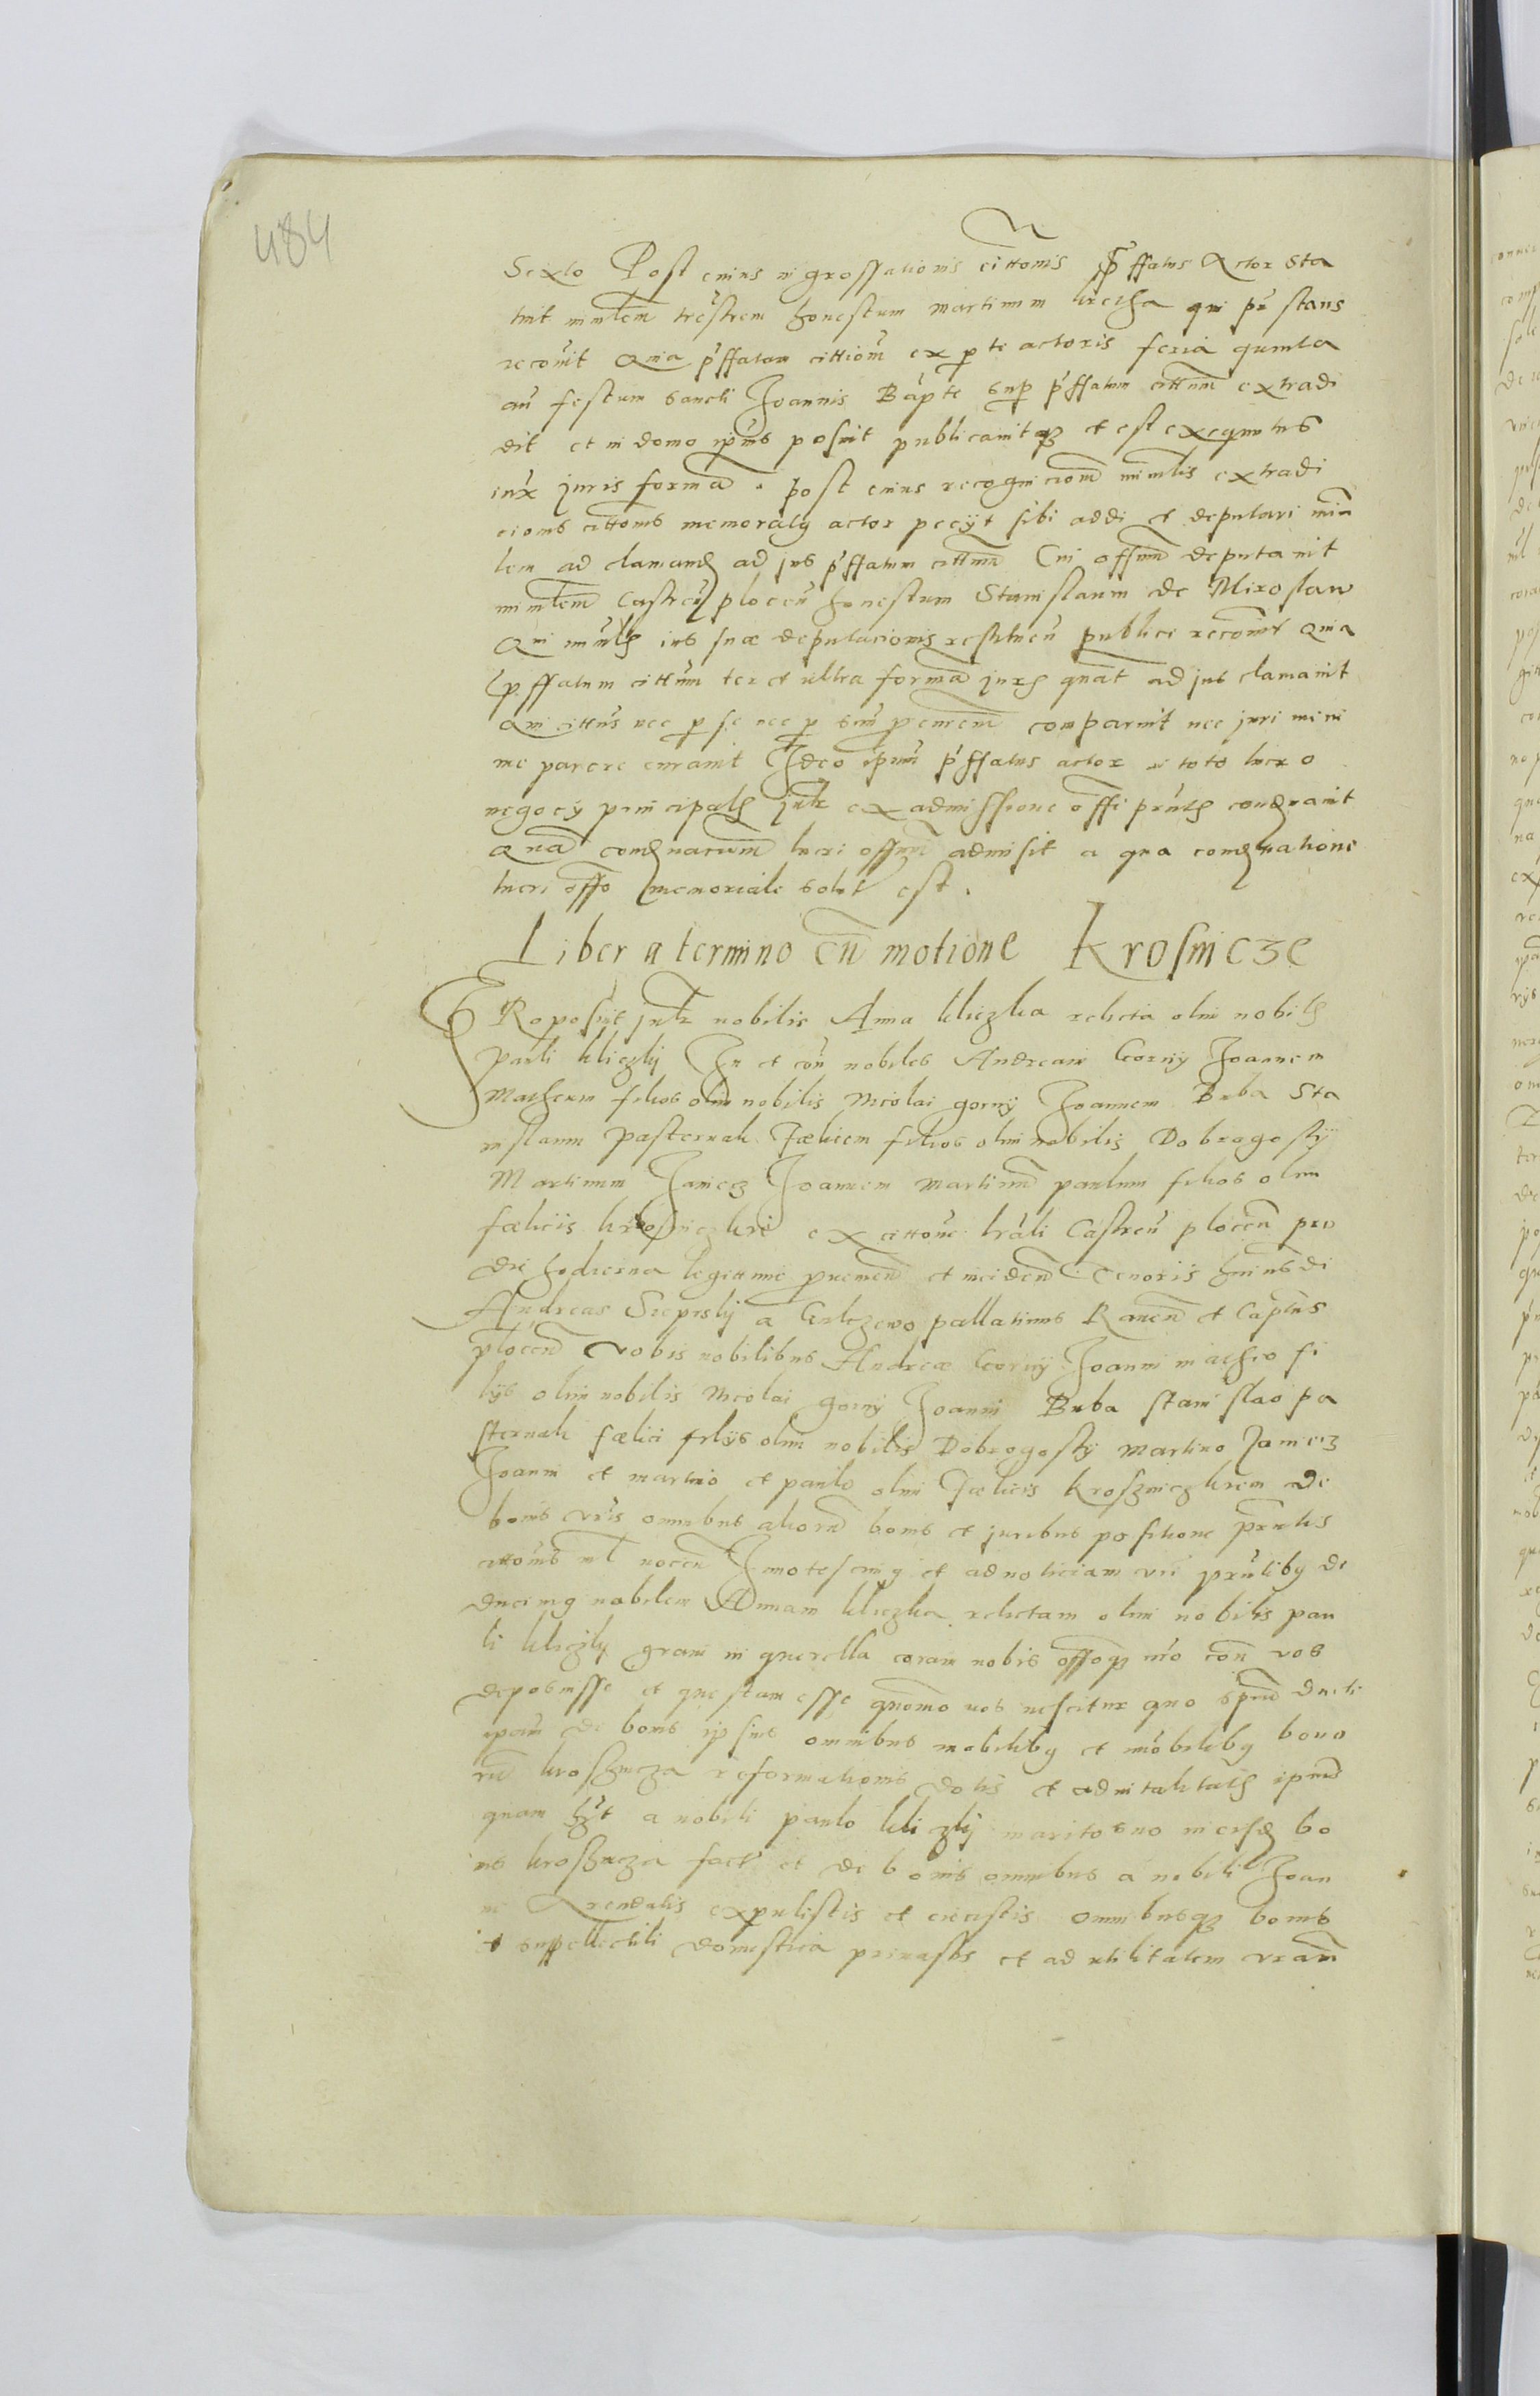 484
Sexto Post cuius ingrossationis cittonis pffatus Actor Sta
tuit minlem trestrem honestum martinum qui pr stans
recouit Quia pffatam cittiom ex p te actoris feria quinta
an festum Sancti Joannis Bapte Sup pffatum cittum extradi
dit et in domo ipius posuit publicauitqz et est exequutus
iux juris forma. post cuius recogniciom minlis extradi
cionis cittonis memoraty actor pecyt sibi addi et deputari min
lem ad clamand ad jus pffatum cittum Cui offium deputauit
minlem Castren plocen honestum Stanislaum de Miroslaw
Qui iuis suae deputacionis restituen publice recouit Quia
pffatum cittum ter et ultra forma juris ad jus clamauit
Qui cittus nec p se nec p suu comparuit nec juri mini
me parere curauit Ideo ipum pffatus actor in toto lucro
negocy principalis judr ex admissione offi pntis condnauit
Quam condnacionem lucri offium admisit a qua condnatione
lucri offo memoriale solut est.
Liber a termino cu motione Krosnicze
Proposuit judr nobilis Anna kliczka relicta olim nobilis
Pauli kliczky In et con nobiles Andream Gorny Joannem
Matheum filios olim nobilis Nicolai gorny Joannem Buba Sta
nislaum Pasternak Faelicem filios olim nobilis Dobrogosty
Martinum Janicz Joannem Martinum paulum filios olim
faelicis ex cittone lrali Castren plocen pro
die hodierna legittime et inciden Tenoris huiusdi
Andreas Sieprsky a Gulczewo pallatinus Rauen et Captus
plocen Vobis nobilibus Andreae Gorny Joanni Matheo fi
lys olim nobilis Nicolai gorny Joanni Buba stanislao pa
sternak faelici filys olim nobilis Dobrogosty Martino Janicz
Joanni et martino et paulo olim Faelicis de
bonis vris omnibus aliorum bonis et juribus positione pntis
cittonis nl nocen Innotescimg et ad noticiam vri pntibg de
ducimg nobilem Annam kliczka relictam olim nobilis pau
li kliczky graui in querella coram nobis offoqz nro con vos
deposuisse et questam esse quomo vos nescitur quo spiritu ducti
ipam de bonis ipsius omnibus mobilibg et imobilibg bono
rum kroshnicza reformationis dotis et aduitalitatis ipius
quam ht a nobili paulo kliczky marito suo in eisd bo
nis kroshnicza fact et de bonis omnibus a nobili Joan
ne Arendatis expulistis et eiecistis omnibusqz bonis
et supellectili domestica priuastis et ad utilitatem vram